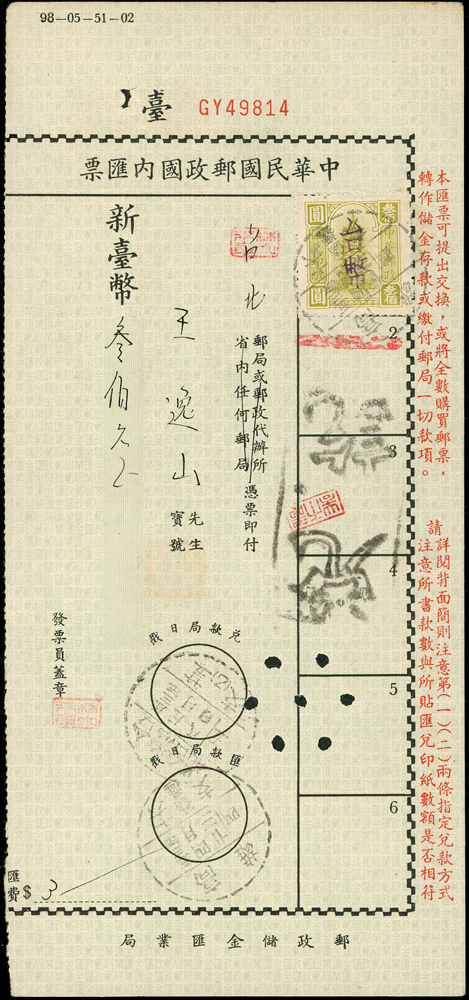 98—05—51—02
臺 GY49814
中華民國郵政國內匯票
本匯票可提出交換，或將全數購買郵票，
轉作儲金存款或繳付郵局一切款項。
請詳閱背面簡則注意第(一)(二)兩條指定兌款方式
注意所書款數與所貼匯兌印紙數額是否相符
圓 叁
圓 叁
台幣
2
3
4
5
6
台北
郵局或郵政代辦所
省內任何郵局
憑票即付
王逸山
先生
寶號
新臺幣
叁佰元正
發票員蓋章
兌款局日戳
匯款局日戳
匯費$ 3
郵政儲金匯業局